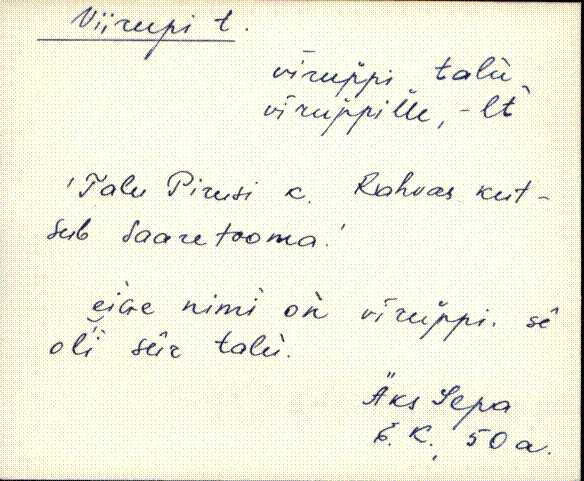 Viirupi t.
vīruppi talu
vīruppille, -lt
'Talu Pirusi k. Rahvas kut-
sub Saaretooma.'
eige nimi oǹ vīruppi. sê
oli sûr talu.
Äks Sepa
E. K., 50 a.